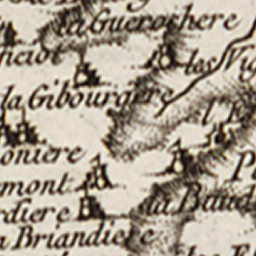 la Gueroschere
neiot
les Vig
la Gibourgere
l'E
oniere
P
mont
la Baud
rdiere
Briandiere
les E